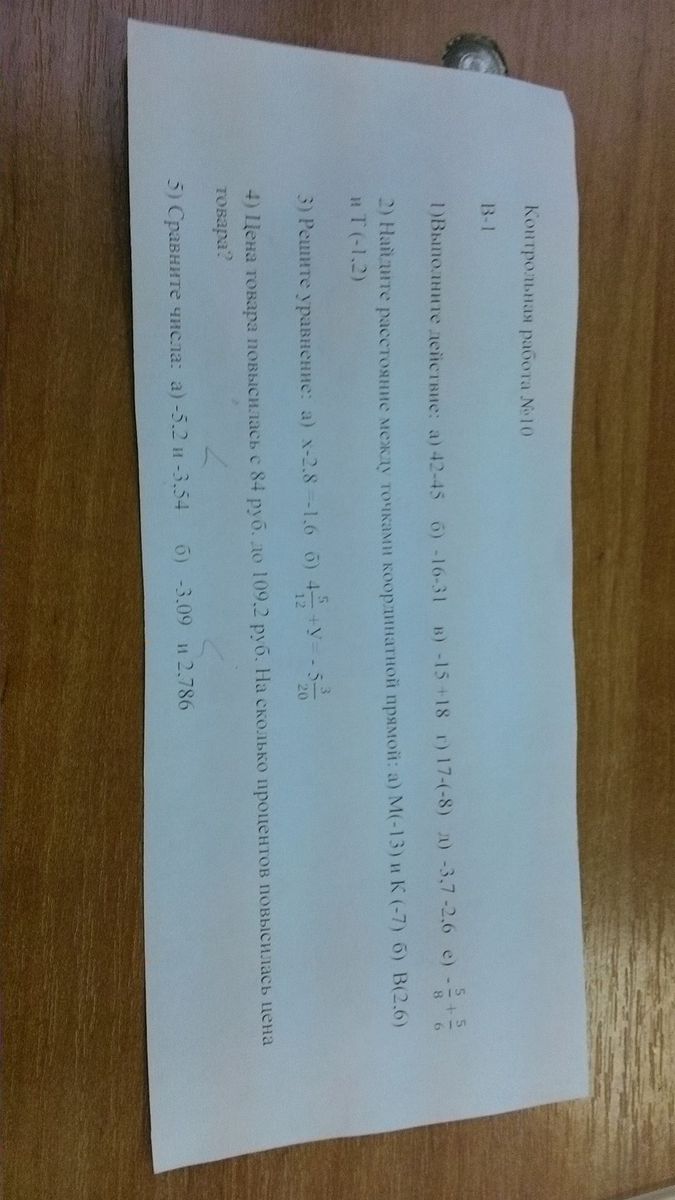 Контрольная работа №10
В-1
1)Выполните действие: а) 42-45 б) -16-31 в) -15+18 г) 17-(-8) д) -3,7 -2,6 е) - 5/8 + 5/6
2) Найдите расстояние между точками координатной прямой: а) М(-13) и К (-7) б) В(2,6)
и Т (-1,2)
3) Решите уравнение: а) х-2,8 =-1,6 б) 4 5/12 +У= - 5 3/20
4) Цена товара повысилась с 84 руб. до 109,2 руб. На сколько процентов повысилась цена
товара?
5) Сравните числа: а) -5,2 и -3,54 б) -3,09 и 2,786